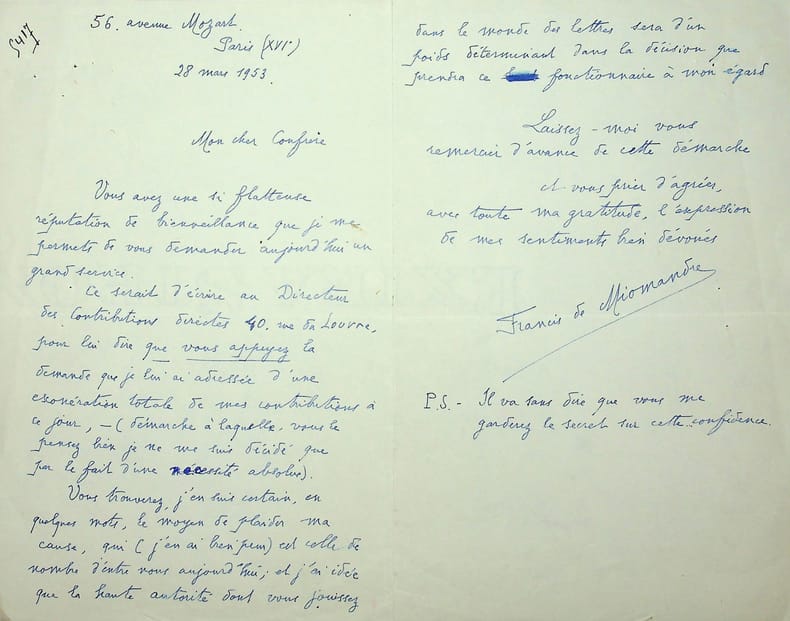 5417
56. avenue Mozart.
Paris (XVIe)
28 mars 1953.
Mon cher Confrère
Vous avez une si flatteuse
réputation de bienveillance que je me
permets de vous demander aujourd'hui un
grand service.
Ce serait d'écrire au Directeur
des Contributions directes 40. rue du Louvre,
pour lui dire que vous appuyez la
demande que je lui ai adressée d'une
exonération totale de mes contributions à
ce jour, — (démarche à laquelle, vous le
pensez bien je ne me suis décidé que
par le fait d'une nécessité absolue).
Vous trouverez, j'en suis certain, en
quelques mots, le moyen de plaider ma
cause, qui (j'en ai bien peur) est celle de
nombre d'entre nous aujourd'hui; et j'ai idée
que la haute autorité dont vous jouissez
dans le monde des lettres sera d'un
poids déterminant dans la décision que
prendra ce fonctionnaire à mon égard
Laissez-moi vous
remercier d'avance de cette démarche
et vous prier d'agréer,
avec toute ma gratitude, l'expression
de mes sentiments bien dévoués
Francis de Miomandre
P.S. - Il va sans dire que vous me
garderez le secret sur cette confidence.